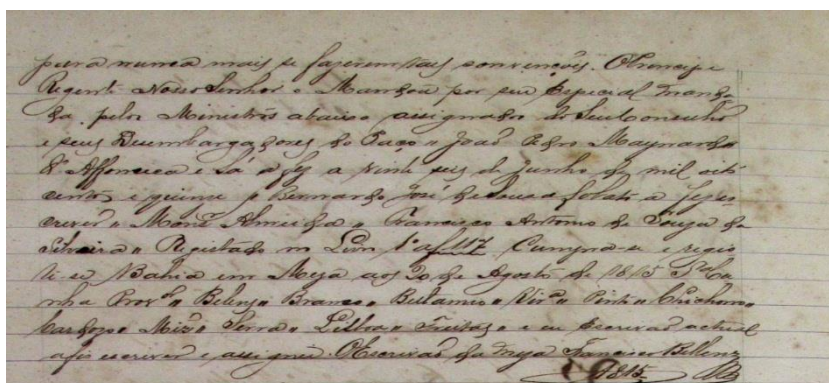 para nunca mais se fazerem taes convenções. O Principe
Regente Nosso Senhor o Mandou por seu Especial Manda
do pelos Ministros abaixo assignados do Seu Conselho
e seus Desembargadores do Paço = João Pedro Maynard
d'Affonseca e Sá a fez a vinte seis de Junho de mil oito
centos e quinze = Bernardo José de Souza Lobato a fez es
crever = Monº Almeida = Francisco Antonio de Souza da
Silveira = Registado no Livrº 1º a f 117 Cumpra-se e regis
te-se Bahia em Meza aos 20 de Agosto de 1815
nha Provºr = Belens = Branco = = Pinto = Chichorro =
Cardozo = = Serra = Lisboa = Freitas = e eu Escrivão actual
a fis escrever e assignei. O Escrivão da Meza Francisco Bellens
1815